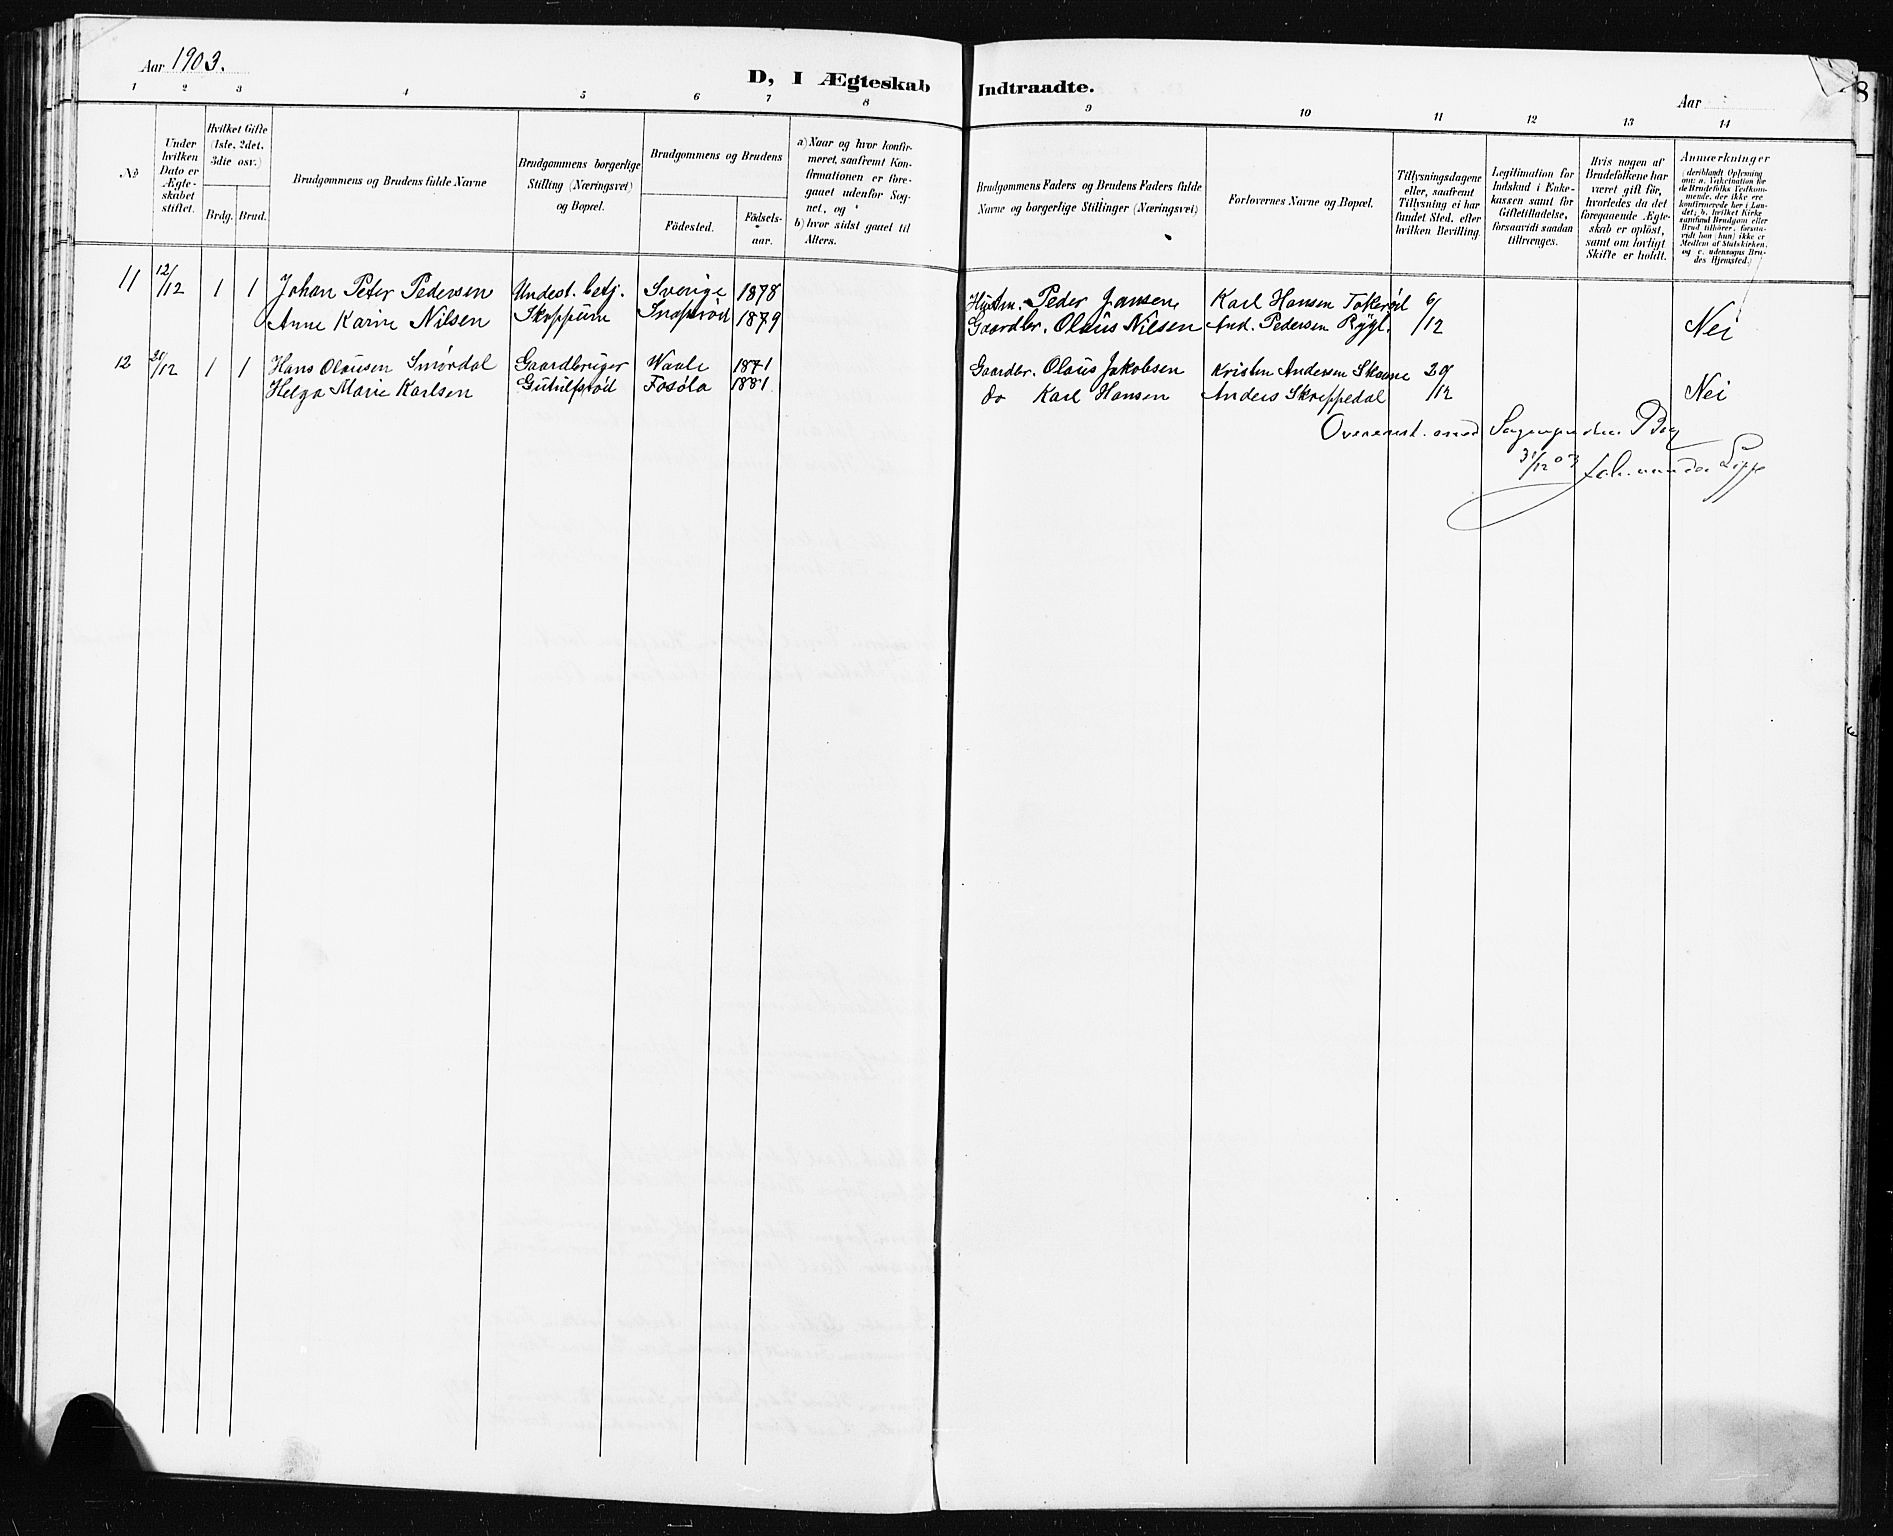 Aar 1903.
D, I Ægteskab Indtraadte.
Aar
8
1 2 3 4 5 6 7 8 9 10 11 12 13 14
No
Under hvilken Dato er Ægteskabet stiftet.
Hvilket Gifte (1ste, 2det, 3die osv.)
Brdg. Brud.
Brudgommens og Brudens fulde Navne
Brudgommens borgerlige Stilling (Næringsvei) og Bopæl.
Brudgommens og Brudens
Födested.
Födsels-aar.
a) Naar og hvor konfirmeret, saafremt Konfirmationen er foregaaet udenfor Sognet, og
b) hvor sidst gaaet til Alters.
Brudgommens Faders og Brudens Faders fulde Navne og borgerlige Stillinger (Næringsvei)
Forlovernes Navne og Bopæl.
Tillysningsdagene eller, saafremt Tillysning ei har fundet Sted, efter hvilken Bevilling.
Legitimation for Indskud i Enkekassen samt for Giftetilladelse, forsaavidt saadan tiltrænges.
Hvis nogen af Brudefolkene har været gift før, hvorledes da det foregaaende Ægteskab er oplöst, samt om lovligt Skifte er holdt.
Anmærkninger (deriblandt Oplysning om: a. Vakcination for de Brudefolks Vedkommende, der ikke ere konfirmerede her i Landet; b. hvilket Kirkesamfund Brudgom eller Brud tilhörer, forsaavidt han (hun) ikke er Medlem af Statskirken, og c. udensogns Brudes Hjemsted.)
11 12/12 1 1 Johan Peter Pedersen Undest. betj. Sverige 1878 Peder Jansen Karl Hansen Tokerød 6/12
Anne Karine Nilsen Skoppum 1879 Gaardbr. Olaus Nilsen And. Pedersen Nei
12 20/12 1 1 Hans Olausen Smørdal Gaardbruger Waale 1871 Gaardbr. Olaus Jakobsen Kristen Andersen 20/12
Helga Marie Karlsen Gutulfsrød Fosøla 1881. do Karl Hansen Anders Skreppedal Nei
Overenst. med Bog
31/12 03